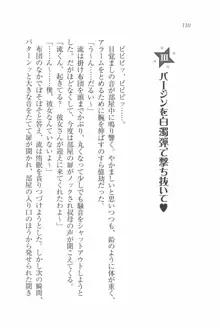 110
III
バージンを白濁弾で撃ち抜いて♥
ピピピッ、ピピピッ……。
目覚ましの音が部屋中に鳴り響く。やかましいと思いつつも、鉛のように体が重く、
アラームをとめるために腕を伸ばすのすら億劫だ。
「うーん……だるい〜」
流は掛け布団を頭までかぶり、丸くなって少しでも騒音をシャットアウトしようと
した。だがほどなくして、今度は部屋の扉がノックされ叔母の声が聞こえてきた。
「流くん、起きて。彼女さんが迎えに来てくれたわよ〜」
「うーん……彼女なんていないってば……」
布団のなかでぼそぼそと答え、流は惰眠を貪りつづけようとした。しかし次の瞬間、
バターン！ と大きな音をたてて扉が開かれ、部屋の入り口のほうから発せられた聞き